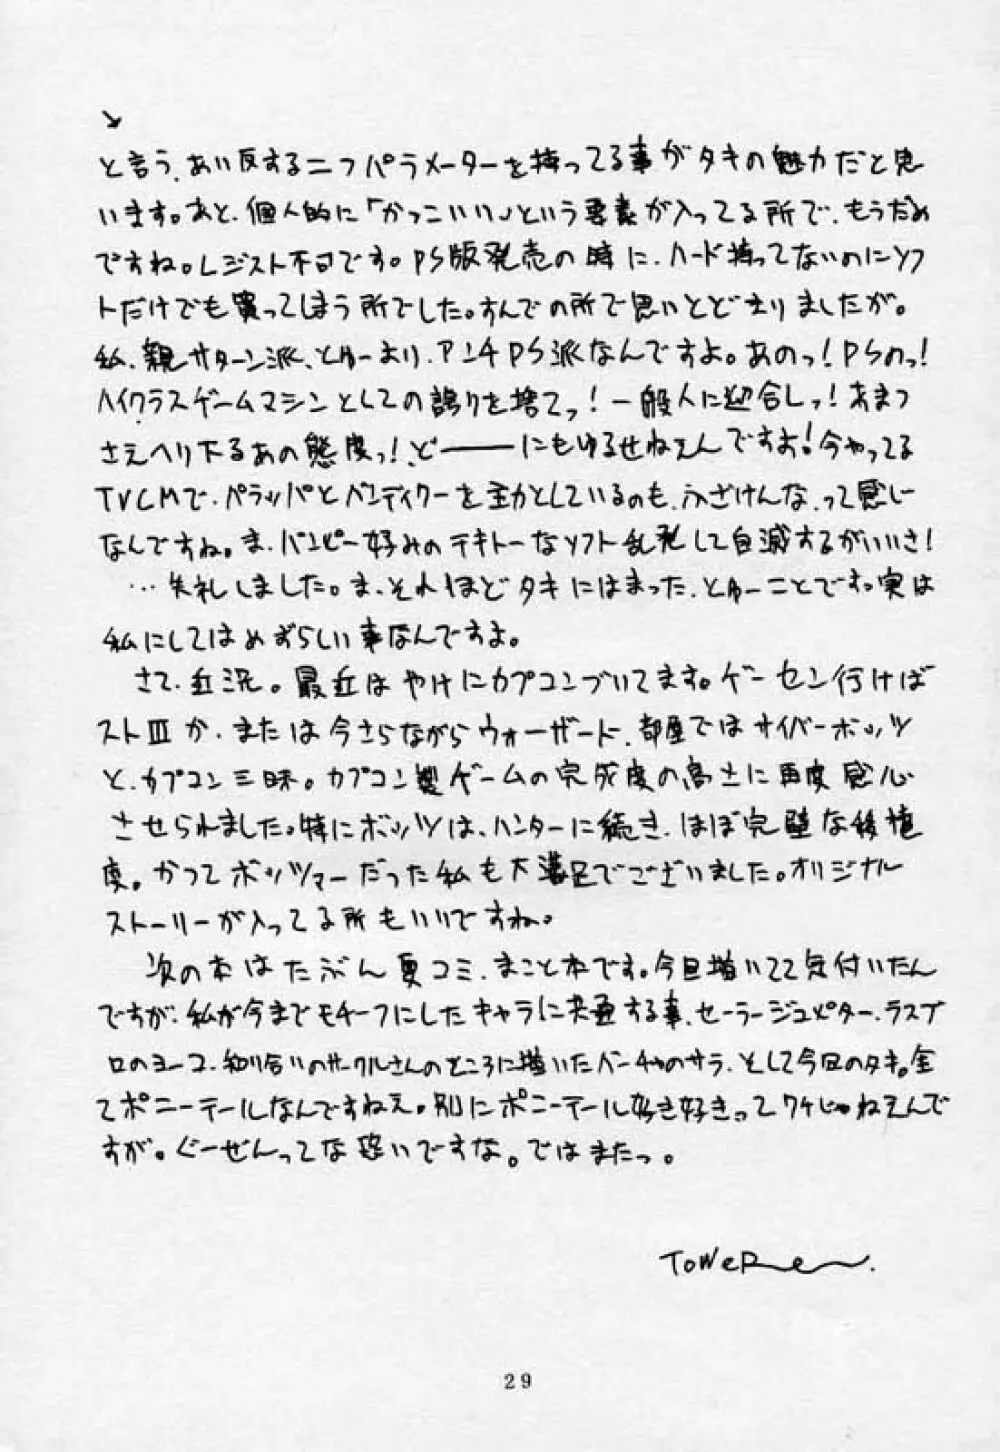 と言う、あい反する二つパラメーターを持ってる事がタキの魅力だと思
います。あと、個人的に「かっこいい」という要素が入ってる所で、もうだめ
ですね。レジスト不可です。PS版発売の時に、ハード持ってないのにソフ
トだけでも買ってしまう所でした。すんでの所で思いとどまりましたが。
私、親サターン派、とゆーより、アンチPS派なんですよ。あのっ!PSのっ!
ハイクラスゲームマシンとしての誇りを捨てっ!一般人に迎合しっ!あまつ
さえへり下るあの態度っ!、ど──にもゆるせねえんですよ!今やってる
TVCMで、パラッパとバンディクーを主力としているのも、ふざけんな、って感じ
なんですね。ま、パンピー好みのテキトーなソフト乱発して自滅するがいいさ!
…失礼しました。ま、それほどタキにはまった、とゆーことです。実は
私にしてはめずらしい事なんですよ。
さて、近況。最近はやけにカプコンづいてます。ゲーセン行けば
ストIIIか、または今さらながらウォーザード、部屋ではサイバーボッツ
と、カプコン三昧。カプコン製ゲームの完成度の高さに再度感心
させられました。特にボッツは、ハンターに続き、ほぼ完璧な移植
度。かつてボッツマーだった私も大満足でございました。オリジナル
ストーリーが入ってる所もいいですね。
次の本はたぶん夏コミ、まこと本です。今回描いてて気付いたん
ですが、私が今までモチーフにしたキャラに共通する事、セーラージュピター、ラスブ
ロのヨーコ、知り合いのサークルさんのところに描いたバーチャのサラ、そして今回のタキ。全
てポニーテールなんですねえ。別にポニーテール好き好きってワケじゃねえんで
すが。ぐーぜんってな恐いですな。ではまたっ。
ToWeR
29